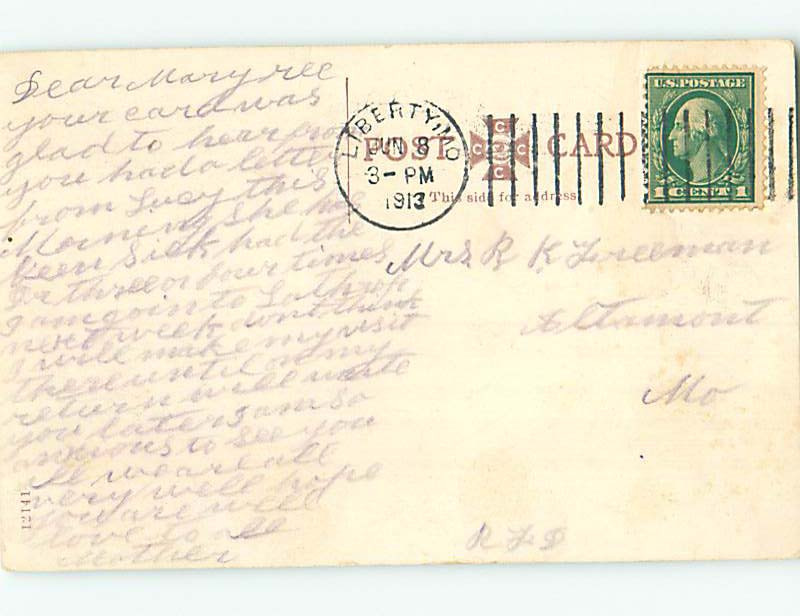 Dear Mary rec
your card was
glad to hear from
you had a letter
from Lucy this
Morning She had
been Sick had the
Dr three or four times
I am goin to Lathrop
next week dont think
I will make my visit
there until on my
return will write
you later I am so
anxious to see you
all we are all
very well hope
you are well
love to all
Mother
12141
LIBERTY, MO
JUN 8
3 - PM
1913
POST CARD
This side for address
U.S. POSTAGE
1 CENT 1
Mrs. R K Freeman
Altamont
Mo
R F D